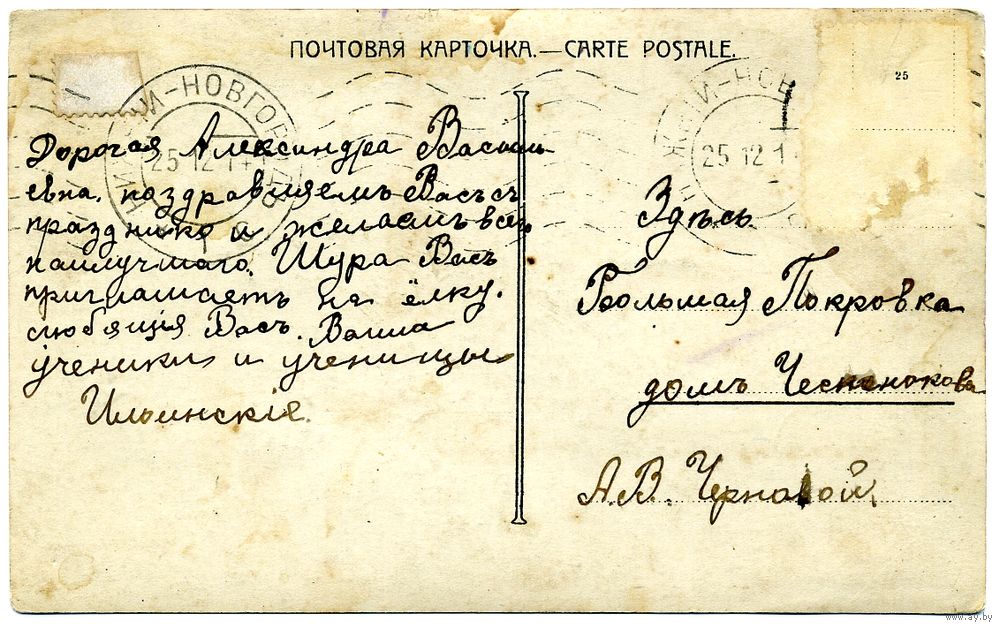 ПОЧТОВАЯ КАРТОЧКА.—CARTE POSTALE.
25
НИЖНИЙ-НОВГОРОДЪ
25 12 1
25 12 1
Дорогая Александра Василь
евна. поздравляемъ Васъ съ
праздникомъ и желаемъ всего
наилучшаго. Шура Васъ
приглашаетъ на ёлку.
любящія Васъ. Ваши
ученики и ученицы
Ильинскіе.
Здѣсь.
Большая Покровка
домъ Чеснокова
А.В. Черновой.
www.ay.by